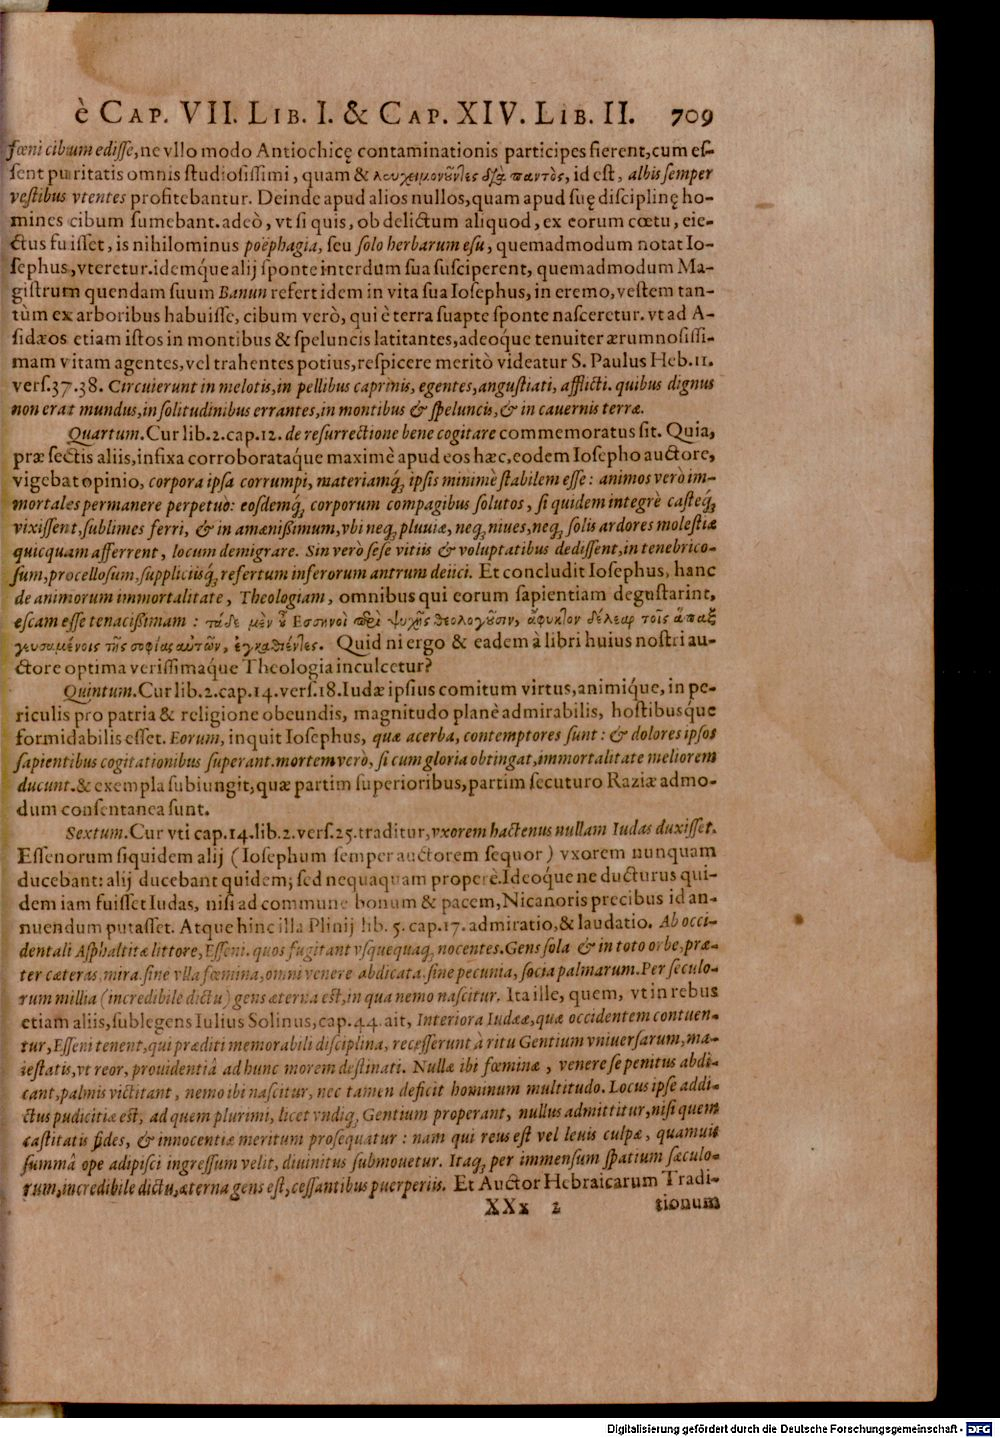 è CAP. VII. LIB. I. & CAP. XIV. LIB. II. 709
fœni cibum ediſſe, ne vllo modo Antiochicę contaminationis participes fierent, cum eſ-
ſent puritatis omnis ſtudioſiſſimi, quam & λευχειμονοῦντες διὰ παντὸς, id eſt, albis ſemper
veſtibus vtentes profitebantur. Deinde apud alios nullos, quam apud ſuę diſciplinę ho-
mines cibum ſumebant. adeò, vt ſi quis, ob delictum aliquod, ex eorum cœtu, eie-
ctus fuiſſet, is nihilominus poëphagia, ſeu ſolo herbarum eſu, quemadmodum notat Io-
ſephus, vteretur. idemq́ue alij ſponte interdum ſua ſuſciperent, quemadmodum Ma-
giſtrum quendam ſuum Banun refert idem in vita ſua Ioſephus, in eremo, veſtem tan-
tùm ex arboribus habuiſſe, cibum verò, qui è terra ſuapte ſponte naſceretur. vt ad A-
ſidæos etiam iſtos in montibus & ſpeluncis latitantes, adeoque tenuiter ærumnoſiſſi-
mam vitam agentes, vel trahentes potius, reſpicere meritò videatur S. Paulus Heb. 11.
verſ. 37. 38. Circuierunt in melotis, in pellibus caprinis, egentes, anguſtiati, afflicti. quibus dignus
non erat mundus, in ſolitudinibus errantes, in montibus & ſpeluncis, & in cauernis terræ.
Quartum. Cur lib. 2. cap. 12. de reſurrectione bene cogitare commemoratus ſit. Quia,
præ ſectis aliis, infixa corroborataq́ue maximè apud eos hæc, eodem Ioſepho auctore,
vigebat opinio, corpora ipſa corrumpi, materiamq́; ipſis minimè ſtabilem eſſe: animos verò im-
mortales permanere perpetuò: eoſdemq́; corporum compagibus ſolutos, ſi quidem integrè caſteq́;
vixiſſent, ſublimes ferri, & in amæniſsimum, vbi neq; pluuiæ, neq; niues, neq; ſolis ardores moleſtiæ
quicquam afferrent, locum demigrare. Sin verò ſeſe vitiis & voluptatibus dediſſent, in tenebrico-
ſum, procelloſum, ſuppliciiſq́; refertum inferorum antrum deiici. Et concludit Ioſephus, hanc
de animorum immortalitate, Theologiam, omnibus qui eorum ſapientiam deguſtarint,
eſcam eſſe tenaciſsimam: τάδε μὲν οὖν Εσσηνοὶ περὶ ψυχῆς θεολογοῦσιν, ἄφυκτον δέλεαρ τοῖς ἅπαξ
γευσαμένοις τῆς σοφίας αὐτῶν, ἐγκαθιέντες. Quid ni ergo & eadem à libri huius noſtri au-
ctore optima veriſſimaque Theologia inculcetur?
Quintum. Cur lib. 2. cap. 14. verſ. 18. Iudæ ipſius comitum virtus, animiq́ue, in pe-
riculis pro patria & religione obeundis, magnitudo planè admirabilis, hoſtibusq́ue
formidabilis eſſet. Eorum, inquit Ioſephus, quæ acerba, contemptores ſunt: & dolores ipſos
ſapientibus cogitationibus ſuperant. mortem verò, ſi cum gloria obtingat, immortalitate meliorem
ducunt. & exempla ſubiungit, quæ partim ſuperioribus, partim ſecuturo Raziæ admo-
dum conſentanea ſunt.
Sextum. Cur vti cap. 14. lib. 2. verſ. 25. traditur, vxorem hactenus nullam Iudas duxiſſet.
Eſſenorum ſiquidem alij (Ioſephum ſemper auctorem ſequor) vxorem nunquam
ducebant: alij ducebant quidem; ſed nequaquam properè. Ideoq́ue ne ducturus qui-
dem iam fuiſſet Iudas, niſi ad commune bonum & pacem, Nicanoris precibus id an-
nuendum putaſſet. Atque hinc illa Plinij lib. 5. cap. 17. admiratio, & laudatio. Ab occi-
dentali Aſphaltitæ littore, Eſſeni. quos fugitant vſquequaq; nocentes. Gens ſola & in toto orbe, præ-
ter cæteras mira. ſine vlla fœmina, omni venere abdicata. ſine pecunia, ſocia palmarum. Per ſeculo-
rum millia (incredibile dictu) gens æterna eſt, in qua nemo naſcitur. Ita ille, quem, vt in rebus
etiam aliis, ſublegens Iulius Solinus, cap. 44. ait, Interiora Iudææ, quæ occidentem contuen-
tur, Eſſeni tenent, qui præditi memorabili diſciplina, receſſerunt à ritu Gentium vniuerſarum, ma-
ieſtatis, vt reor, prouidentiâ ad hunc morem deſtinati. Nullæ ibi fœminæ, venere ſe penitus abdi-
cant, palmis victitant, nemo ibi naſcitur, nec tamen deficit hominum multitudo. Locus ipſe addi-
ctus pudicitiæ eſt, ad quem plurimi, licet vndiq; Gentium properant, nullus admittitur, niſi quem
caſtitatis fides, & innocentiæ meritum proſequatur: nam qui reus eſt vel leuis culpæ, quamuis
ſummâ ope adipiſci ingreſſum velit, diuinitus ſubmouetur. Itaq; per immenſum ſpatium ſæculo-
rum, incredibile dictu, æterna gens eſt, ceſſantibus puerperiis. Et Auctor Hebraicarum Tradi-
XXx 2 tionum
Digitalisierung gefördert durch die Deutsche Forschungsgemeinschaft - DFG